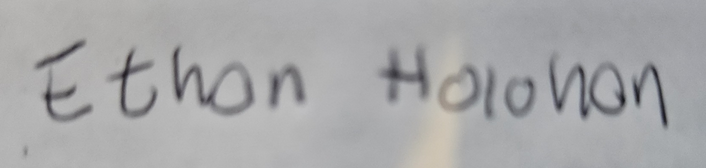 Ethan Holohan